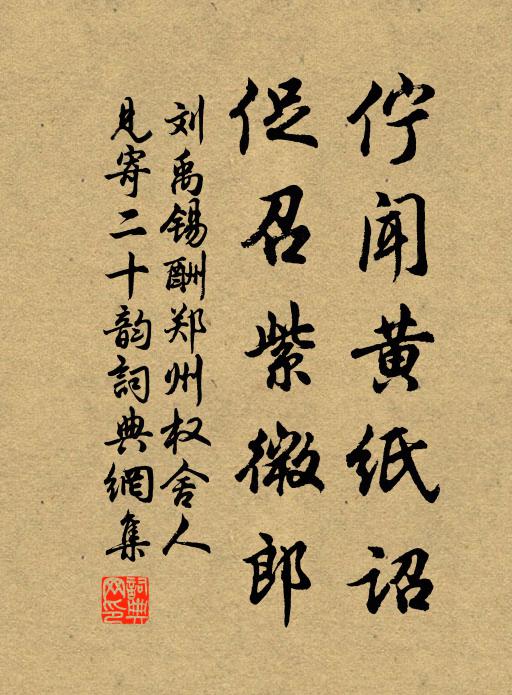 佇闻黄纸诏
促召紫微郎
刘禹锡酬郑州权舍人
见寄二十韵詞典網集
詞典网印